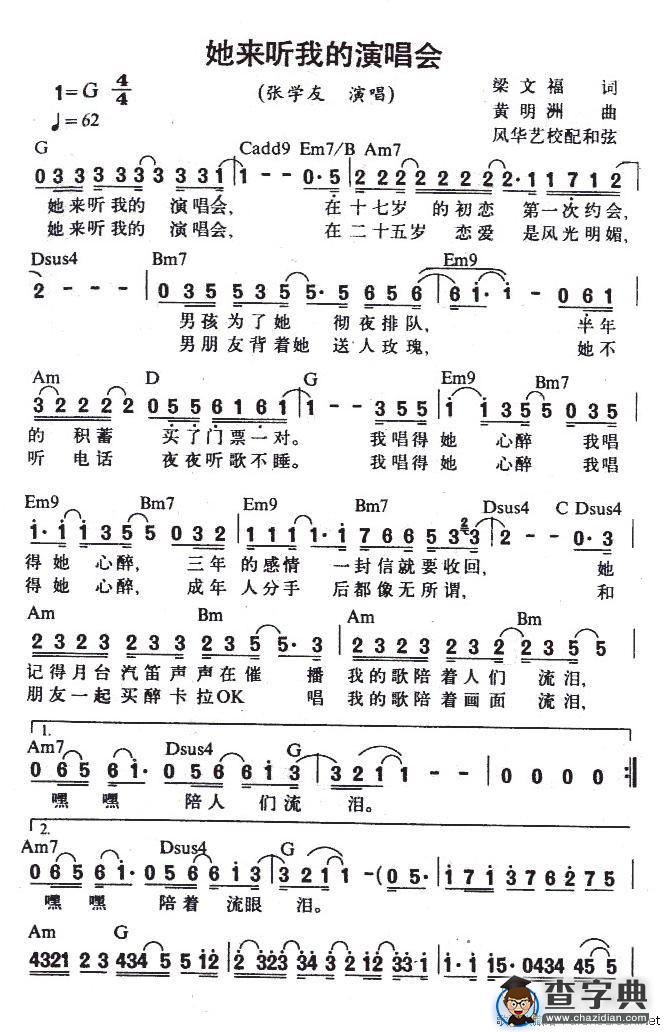 她来听我的演唱会
1=G 4/4
(张学友 演唱)
梁文福 词
♩=62
黄明洲 曲
风华艺校配和弦
G Cadd9 Em7/B Am7
0 3 3 3 3 3 3 3 3 1 | 1 - - 0·5 | 2 2 2 2 2 2 2 2 2·1 1 7 1 2 |
她来听我的 演唱会, 在十七岁 的初恋 第一次约会,
她来听我的 演唱会, 在二十五岁 恋爱 是风光明媚,
Dsus4 Bm7 Em9
2 - - - | 0 3 5 5 3 5 5· 5 6 5 6 | 6 1· 1 - 0 6 1 |
男孩为了她 彻夜排队, 半年
男朋友背着她 送人玫瑰, 她不
Am D G Em9 Bm7
3 2 2 2 2 0 5 5 6 1 6 1 | 1 - - 3 5 5 | 1 1 3 5 5 0 3 5 |
的 积蓄 买了门票一对。 我唱得她 心醉 我唱
听 电话 夜夜听歌不睡。 我唱得她 心醉 我唱
Em9 Bm7 Em9 Bm7 Dsus4 C Dsus4
1·1 1 3 5 5 0 3 2 | 1 1 1 1 1·1 7 6 6 5 5 3 | 2 - - 0·3 |
得她 心醉, 三年 的感情 一封信就要收回, 她
得她 心醉, 成年 人分手 后都像无所谓, 和
Am Bm Am Bm
2 3 2 3 2 3 2 3 2 3 5 5·3 | 2 3 2 3 2 3 2 2 3 5 5 |
记得月台 汽笛声声在催 播 我的歌陪着人们 流泪,
朋友一起 买醉卡拉OK 唱 我的歌陪着画面 流泪,
1.
Am7 Dsus4 G
0 6 5 6 1· 0 5 6 6 1 3 | 3 2 1 1 - - | 0 0 0 0 :|
嘿 嘿 陪人 们流 泪。
2.
Am7 Dsus4 G
0 6 5 6 1· 0 5 6 6 1 3 | 3 2 1 1 -(0 5· | 1 7 1 3 7 6 2 7 5 |
嘿 嘿 陪着 流眼 泪。
Am G
4321 2 3 434 5 5 12 | 2 323 34 3 2 12 33·1 | 1 15·0434 45 5 |
查字典
www.chazidian.com